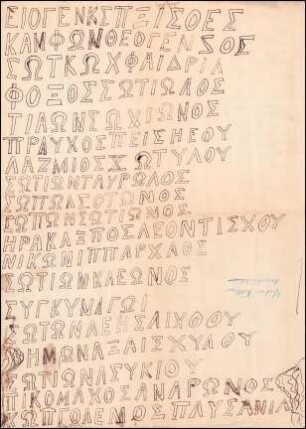 ΕΙΟΓΕΝΚΣΠΞΙΣΟΕΣ
ΚΑΜΦΩΝΘΕΟΓΕΝΣΟΣ
ΣΩΤΚΩΧΦΑΙΔΡΙΑ
ΦΟΞΟΣΣΩΤΙΩΛΟΣ
ΤΙΑΩΝΣΩΧΙΩΝΟΣ
ΠΡΑΥΧΟΣΠΕΙΣΗΕΟΥ
ΛΑΖΜΙΟΣΣΩΤΥΛΟΥ
ΣΩΤΙΩΝΤΑΥΡΩΛΟΣ
ΣΩΠΩΑΣΩΤΩΝΟΣ
ΣΩΠΩΝΣΩΤΙΩΝΟΣ
ΗΡΑΚΑΞΠΟΣΛΕΟΝΤΙΣΧΟΥ
ΝΙΚΩΝΙΠΠΑΡΧΛΟΣ
ΣΩΤΙΩΝΚΛΕΩΝΟΣ
ΣΥΓΚΥΝΑΓΩΙ
ΣΩΤΩΝΑΕΗΣΑΙΧΘΟΥ
ΣΗΜΩΝΑΞΑΙΣΧΥΛΟΥ
ΣΩΤΙΩΝΑΣΥΚΙΟΥ
ΠΙΚΟΜΑΧΟΣΑΝΔΡΩΝΟΣ
ΧΩΠΓΟΛΕΜΟΣΠΑΥΣΑΝΙΑ